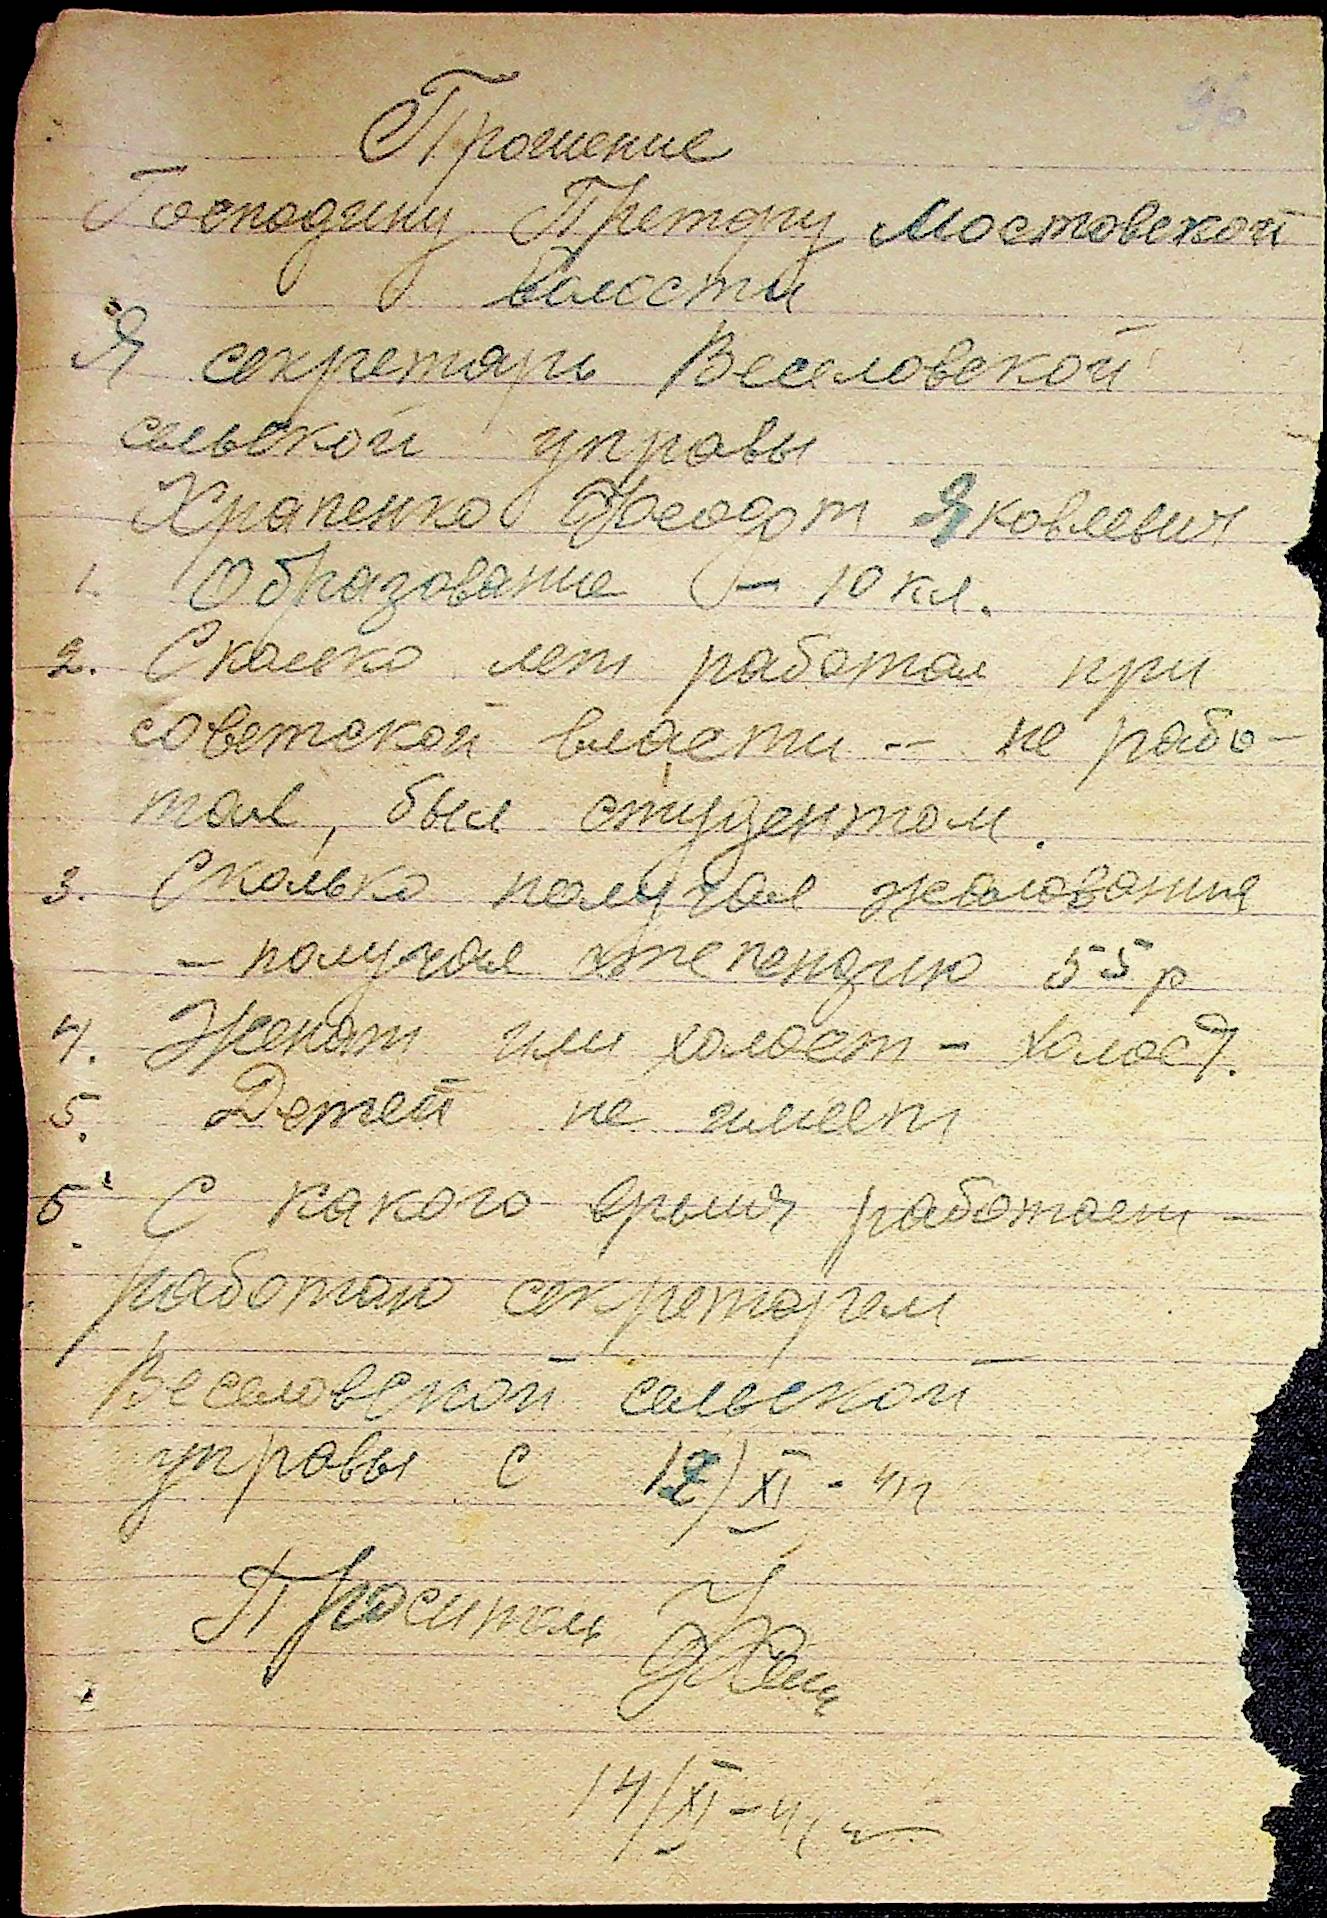 96
Прошение
Господину Претору Мостовской
волости
Я секретарь Веселовской
сельской управы
Храпенко Феодот Яковлевич
1. Образование — 10 кл.
2. Сколько лет работал при
советской власти -- не рабо-
тал, был студентом.
3. Сколько получал жалования
- получал степендию 55 р
4. Женат или холост - холост.
5. Детей не имеет
6. С какого время работает -
работаю секретарем
Веселовской сельской
управы с 12/XI - 41г
Проситель
14/XI - 41 г.